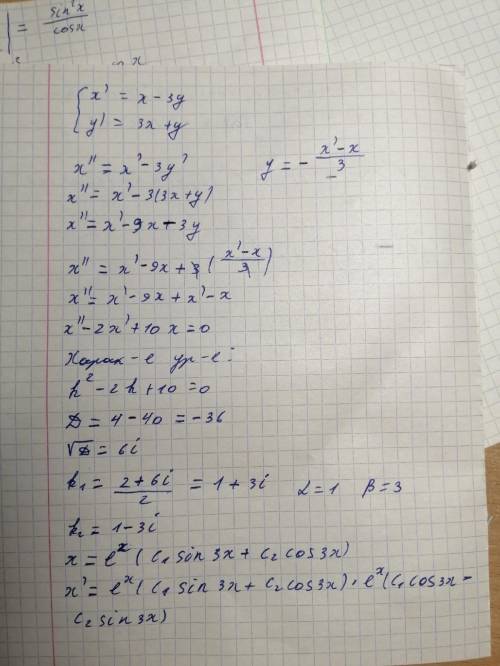 | = sin²x / cosx
x
{ x' = x - 3y
y' = 3x + y
x'' = x' - 3y'
y = - (x' - x) / 3
x'' = x' - 3(3x + y)
x'' = x' - 9x - 3y
x'' = x' - 9x + 3 ( (x' - x) / 3 )
x'' = x' - 9x + x' - x
x'' - 2x' + 10x = 0
Харак-е ур-е:
k² - 2k + 10 = 0
D = 4 - 40 = -36
√D = 6i
k₁ = (2 + 6i) / 2 = 1 + 3i   α = 1   β = 3
k₂ = 1 - 3i
x = eˣ (c₁ sin 3x + c₂ cos 3x)
x' = eˣ (c₁ sin 3x + c₂ cos 3x) · eˣ (c₁ cos 3x -
c₂ sin 3x)